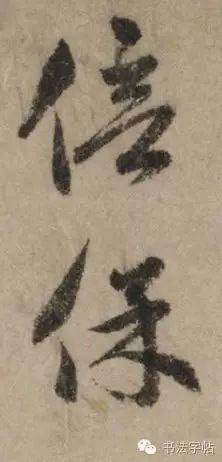 倍保
书法字帖